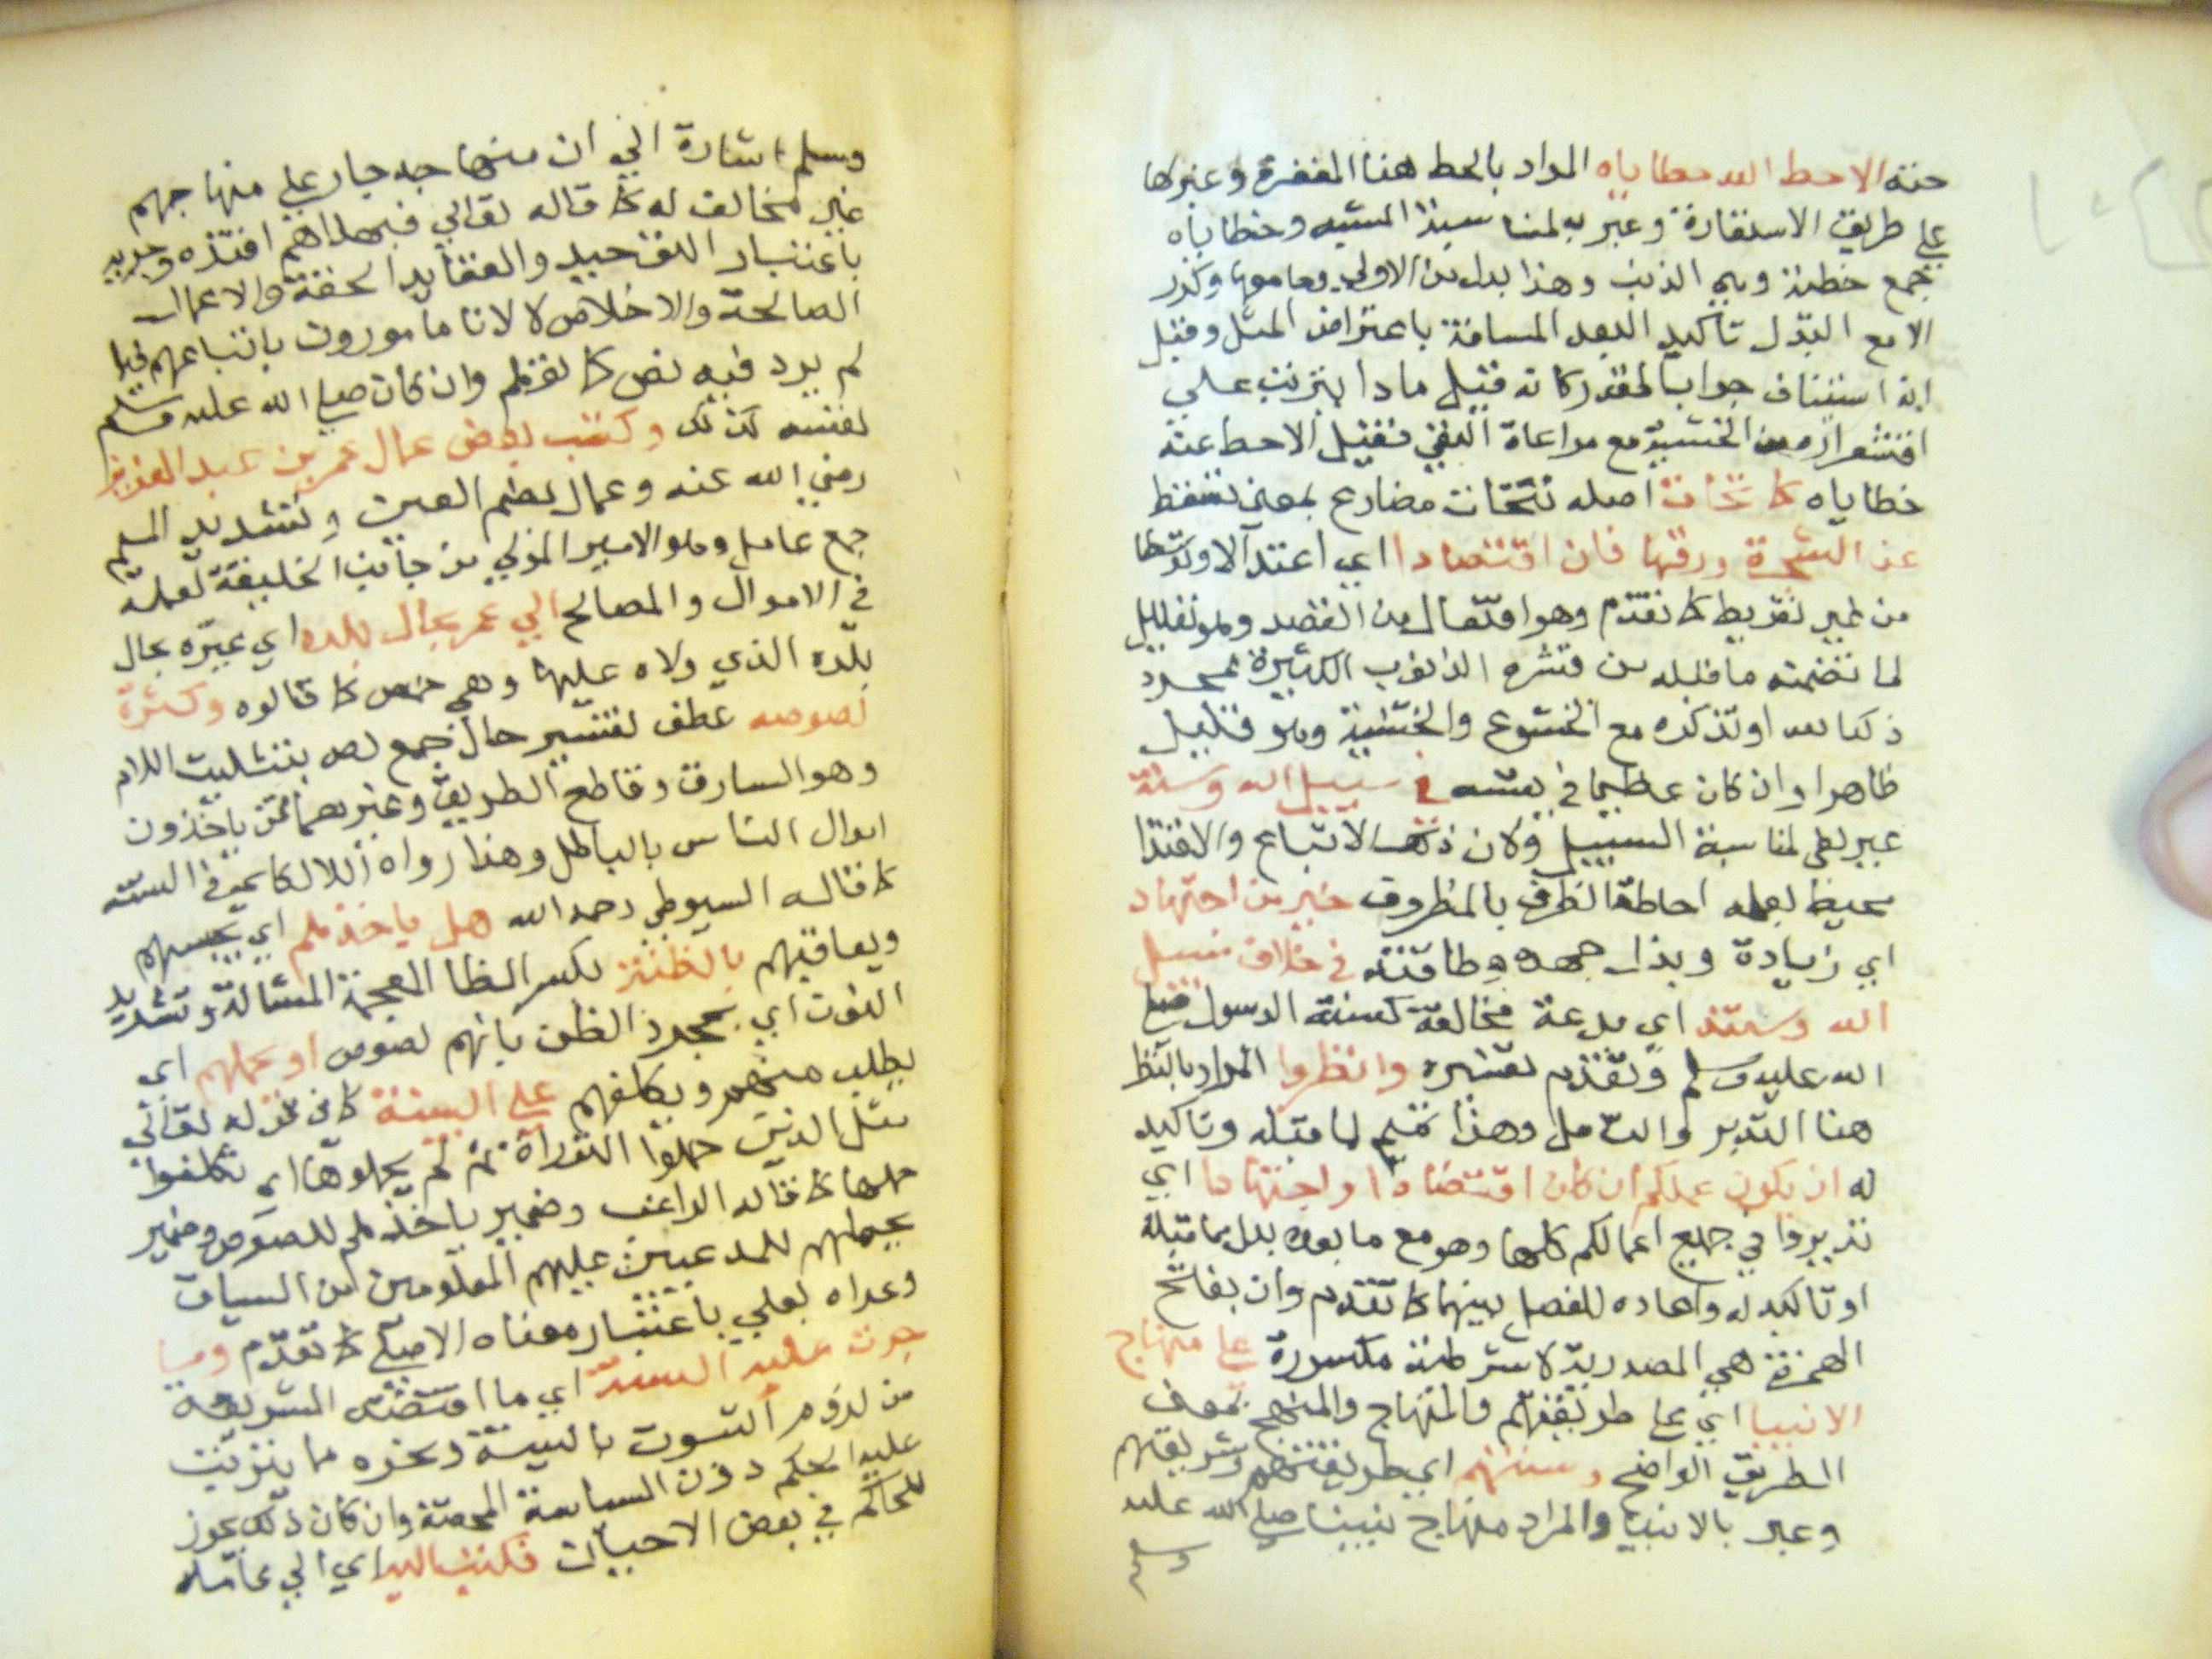 عنه الا حط الله خطاياه المراد بالحط هنا المغفرة وعبر كما
علي طريق الاستعارة وعبر به لمناسبة المشبه وخطاياه
جمع خطية وهي الذنب وهذا بدل من الاولي وما معها وكرر
الا مع البدل تاكيد البعد المسافة باعتراض المثل وقيل
انه استيناف جوابا لمقدر كانه قيل ماذا يترتب علي
اقشعراره من الخشية مع مراعاة النفي فقيل الا حط عنه
خطاياه كما تحات اصله تتحات مضارع بمعني تسقط
عن الشجرة ورقها فان اقتصادا اي اعتدالا وتوسطا
من غير تفريط كما تقدم وهو افتعال من القصد وهو تعليل
لما تضمنه ما قبله من قشره الذنوب الكثيرة بمجرد
ذكر الله او تذكره مع الخشوع والخشية وهو قليل
ظاهرا وان كان عظيما في نفسه في سبيل الله وسنة
عبر بفي لمناسبة السبيل ولان ذلك الاتباع والاقتدا
محيط بعمله احاطة الظرف بالمظروف خير من اجتهاد
اي زيادة وبذل جهده وطاقته في خلاف سبيل
الله وسنة اي بدعة مخالفة لسنة الرسول صلي
الله عليه وسلم وتقدم تفسيره وانظروا المراد بالنظر
هنا التدبر والتامل وهذا تتميم لما قبله وتاكيد
له ان يكون عملكم ان كان اقتصادا او اجتهادا اي
تدبروا في جميع اعمالكم كلها وهو مع ما بعده بدل مما قبله
او تاكيد له واعاده للفصل بينهما كما تقدم وان بفتح
الهمزة هي المصدرية لا شرطية مكسورة علي منهاج
الانبيا اي علي طريقتهم والمنهاج والمنهج بمعني
الطريق الواضح وسنتهم اي طريقتهم وشريعتهم
وعبر بالانبيا والمراد منهاج نبينا صلي الله عليه
وسلم
وسلم اشارة الي ان منهاجه جار علي منهاجهم
غير مخالف له كما قاله تعالي فبهداهم اقتده وجريه
باعتبار التوحيد والعقايد الحقة والاعمال
الصالحة والاخلاص لا لانا مامورون باتباعهم فيما
لم يرد فيه نص كما تقدم وان كان صلي الله عليه وسلم
لنفسه كذلك وكتب بعض عمال عمر بن عبد العزيز
رضي الله عنه وعمال بضم العين وتشديد الميم
جمع عامل وهو الامير المولي من جانب الخليفة لعمله
في الاموال والمصالح الي عمر بحال بلده اي خبره بحال
بلده الذي ولاه عليها وهي حمص كما قالوه وكثرة
لصوصه عطف لتفسير حال جمع لص بتثليث اللام
وهو السارق وقاطع الطريق وغيرهما ممن ياخذون
اموال الناس بالباطل وهذا رواه اللالكايي في السنه
كما قاله السيوطي رحمه الله هل ياخذهم اي يحبسهم
ويعاقبهم بالظنة بكسر الظا المعجمة المشالة وتشديد
النون اي بمجرد الظن بانهم لصوص او يحملهم اي
يطلب منهم ويكلفهم علي البينة كما في قوله تعالي
مثل الذين حملوا التوراة ثم لم يحملوها اي تكلفوا
حملها كما قاله الراغب وضمير ياخذهم للصوص وضمير
يحملهم للمدعيين عليهم المعلومين من السياق
وعداه بعلي باعتبار معناه الاصلي كما تقدم وما
جرت عليه السنة اي ما اقتضته الشريعة
من لزوم الثبوت بالبينة ونحوه ما يترتب
عليه الحكم دون السياسة المحضة وان كان ذلك يجوز
للحاكم في بعض الاحيان فكتب اليه اي الي عامله